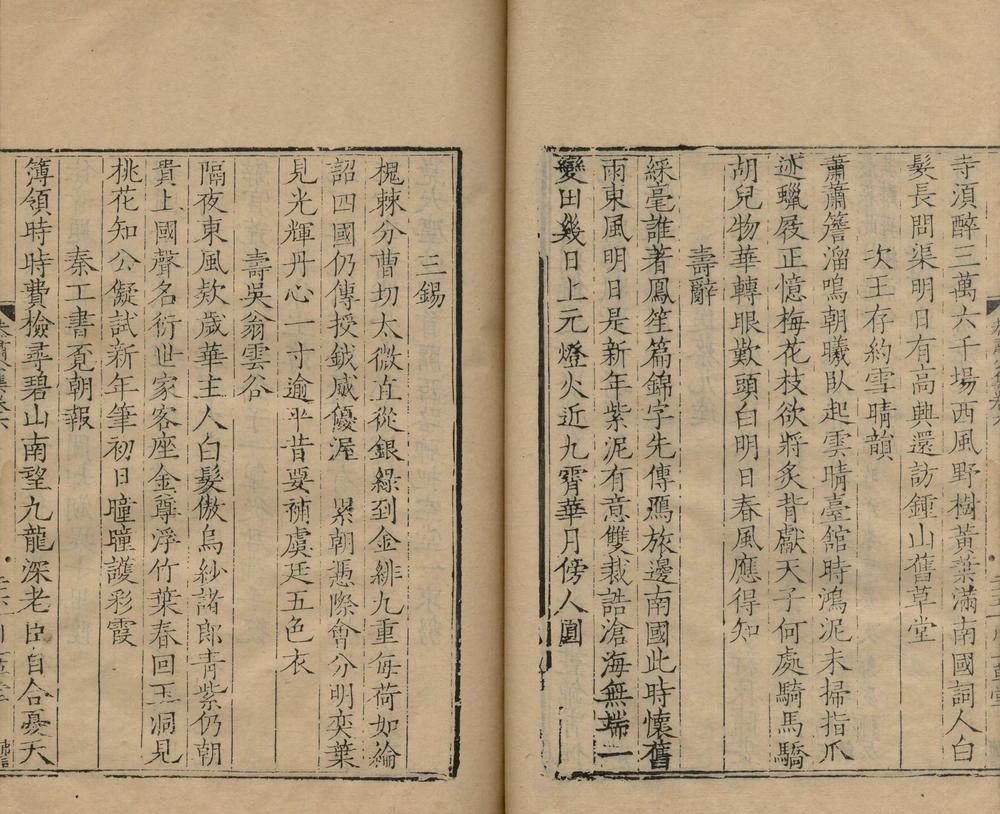 寺須醉三萬六千場西風野樹黃葉滿南國詞人白
髮長問渠明日有高興還訪鍾山舊草堂
次王存約雪晴韻
蕭蕭簷溜鳴朝曦臥起雲晴臺館時鴻泥未掃指爪
迹蠟屐正憶梅花枝欲將炙背獻天子何處騎馬驕
胡兒物華轉眼歎頭白明日春風應得知
壽辭
綵毫誰著鳳笙篇錦字先傳鴈旅邊南國此時懷舊
雨東風明日是新年紫泥有意雙裁誥滄海無端一
變田幾日上元燈火近九霄華月傍人圓
三錫
槐棘分曹切太微直從銀綠到金緋九重每荷如綸
詔四國仍傳授鉞威優渥 累朝憑際會分明奕葉
見光輝丹心一寸逾平昔要補虞廷五色衣
壽吳翁雲谷
隔夜東風欻歲華主人白髮傲烏紗諸郎青紫仍朝
貴上國聲名衍世家客座金尊浮竹葉春回玉洞見
桃花知公儗試新年筆初日曈曈護彩霞
秦工書覔朝報
簿領時時費檢尋碧山南望九龍深老臣自合憂天